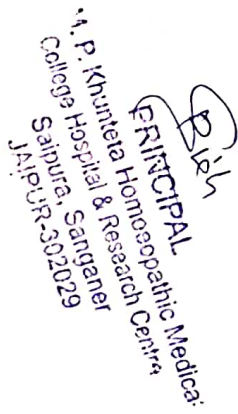 PRINCIPAL
M. P. Khunteta Homoeopathic Medical
College Hospital & Research Centre
Saipura, Sanganer
JAIPUR-302029